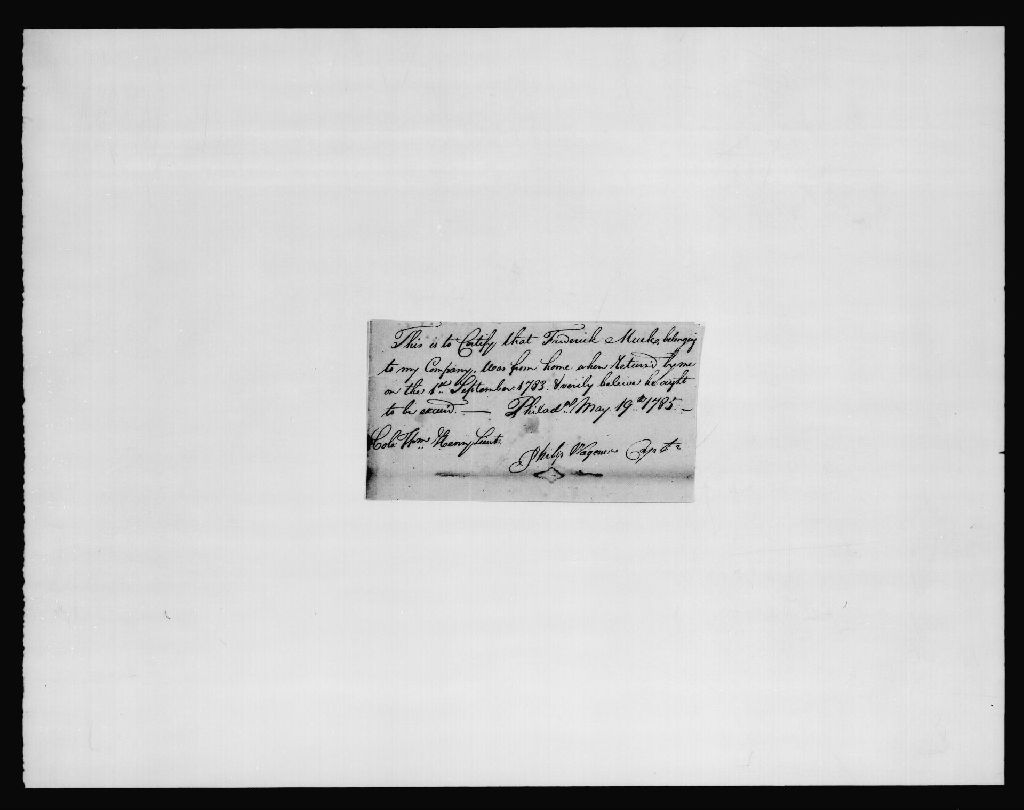 This is to Certify that Frederick Meeks belonging
to my Company, Was from home when Returnd by me
on the 1st September 1783. & verily believe he ought
to be excusd. — Philada. May 19th 1785 —
Colo. Wm. Henry Lieut.
Philip Wagener Captn